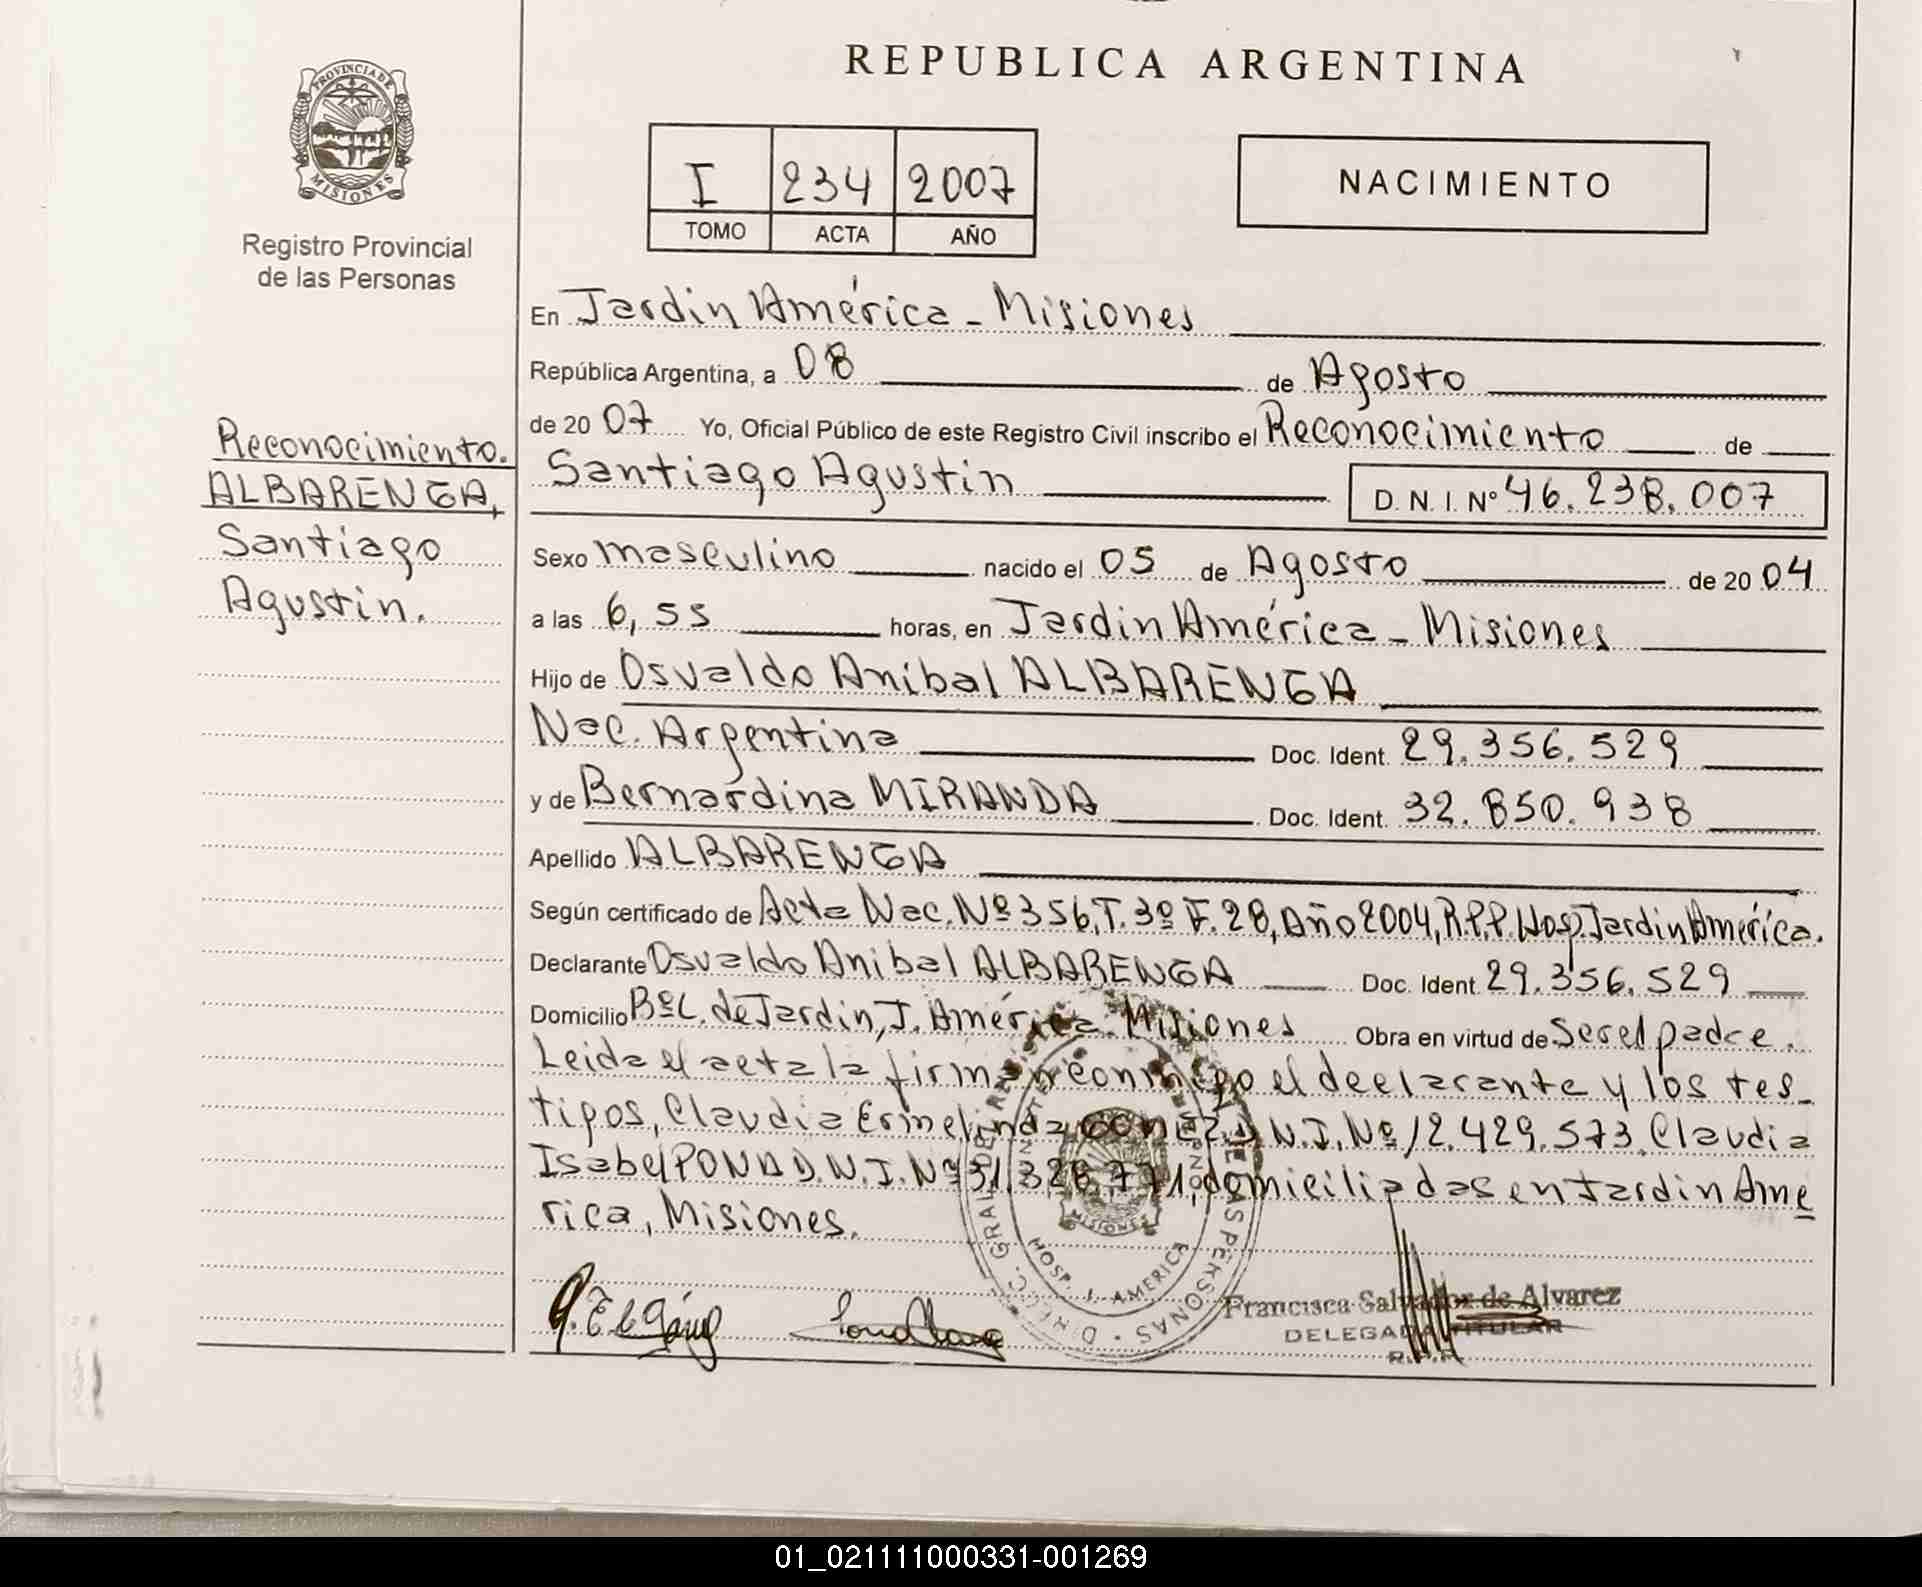 REPUBLICA ARGENTINA
PROVINCIA DE
MISIONES
Registro Provincial
de las Personas
I 234 2007
TOMO ACTA AÑO
NACIMIENTO
En Jardin América - Misiones
República Argentina, a 08 de Agosto
de 20 07 Yo, Oficial Público de este Registro Civil inscribo el Reconocimiento de
Santiago Agustin D. N. I. Nº 46.238.007
Reconocimiento.
ALBARENGA,
Santiago
Agustin.
Sexo masculino nacido el 05 de Agosto de 20 04
a las 6,55 horas, en Jardin América - Misiones
Hijo de Osvaldo Anibal ALBARENGA
Nac. Argentina Doc. Ident. 29.356.529
y de Bernardina MIRANDA Doc. Ident. 32.850.938
Apellido ALBARENGA
Según certificado de Acta Nac. Nº 356, T. 3º F. 28, Año 2004, R.P.P. Hosp. Jardin América.
Declarante Osvaldo Anibal ALBARENGA Doc. Ident 29.356.529
Domicilio Bº C. de Jardin, J. América Misiones Obra en virtud de Ser el padre.
Leida el acta la firman conmigo el declarante y los tes-
tigos, Claudia Ermelinda D.N.I. Nº 12.429.573 Claudia
Isabel PONA D.N.I. Nº 31.328.771, domiciliadas en Jardin Ame
rica, Misiones.
HOSP. J. AMERICA
MISIONES
Francisca Salvador de Alvarez
DELEGADA TITULAR
R.P.P.
01_021111000331-001269